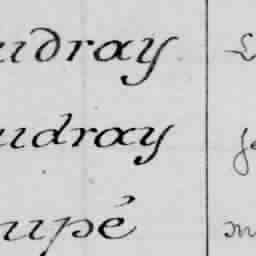 udray
udray
upé